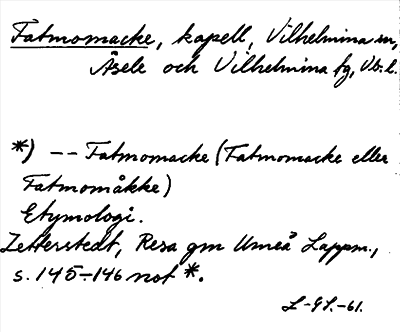 Fatmomacke, kapell, Vilhelmina sn,
Åsele och Vilhelmina tg, Vb. l.
*) -- Fatmomacke (Fatmomacke eller
Fatmomåkke)
Etymologi.
Zetterstedt, Resa gm Umeå Lappm.,
s. 145-146 not *.
L-gL.-61.